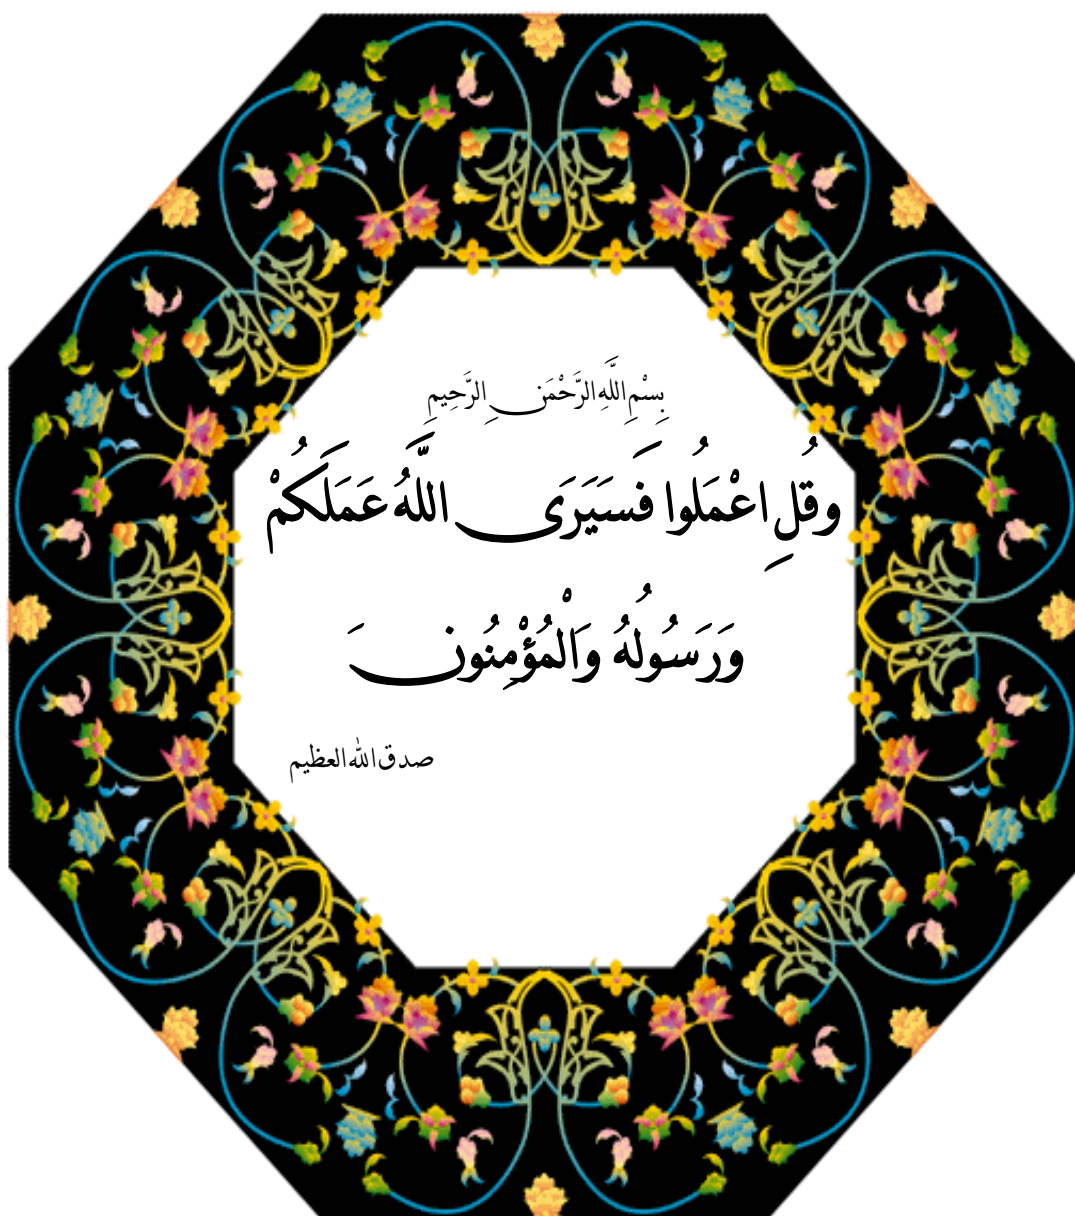 بِسْمِ اللَّهِ الرَّحْمَنِ الرَّحِيمِ
وَقُلِ اعْمَلُوا فَسَيَرَى اللَّهُ عَمَلَكُمْ
وَرَسُولُهُ وَالْمُؤْمِنُونَ
صدق الله العظيم